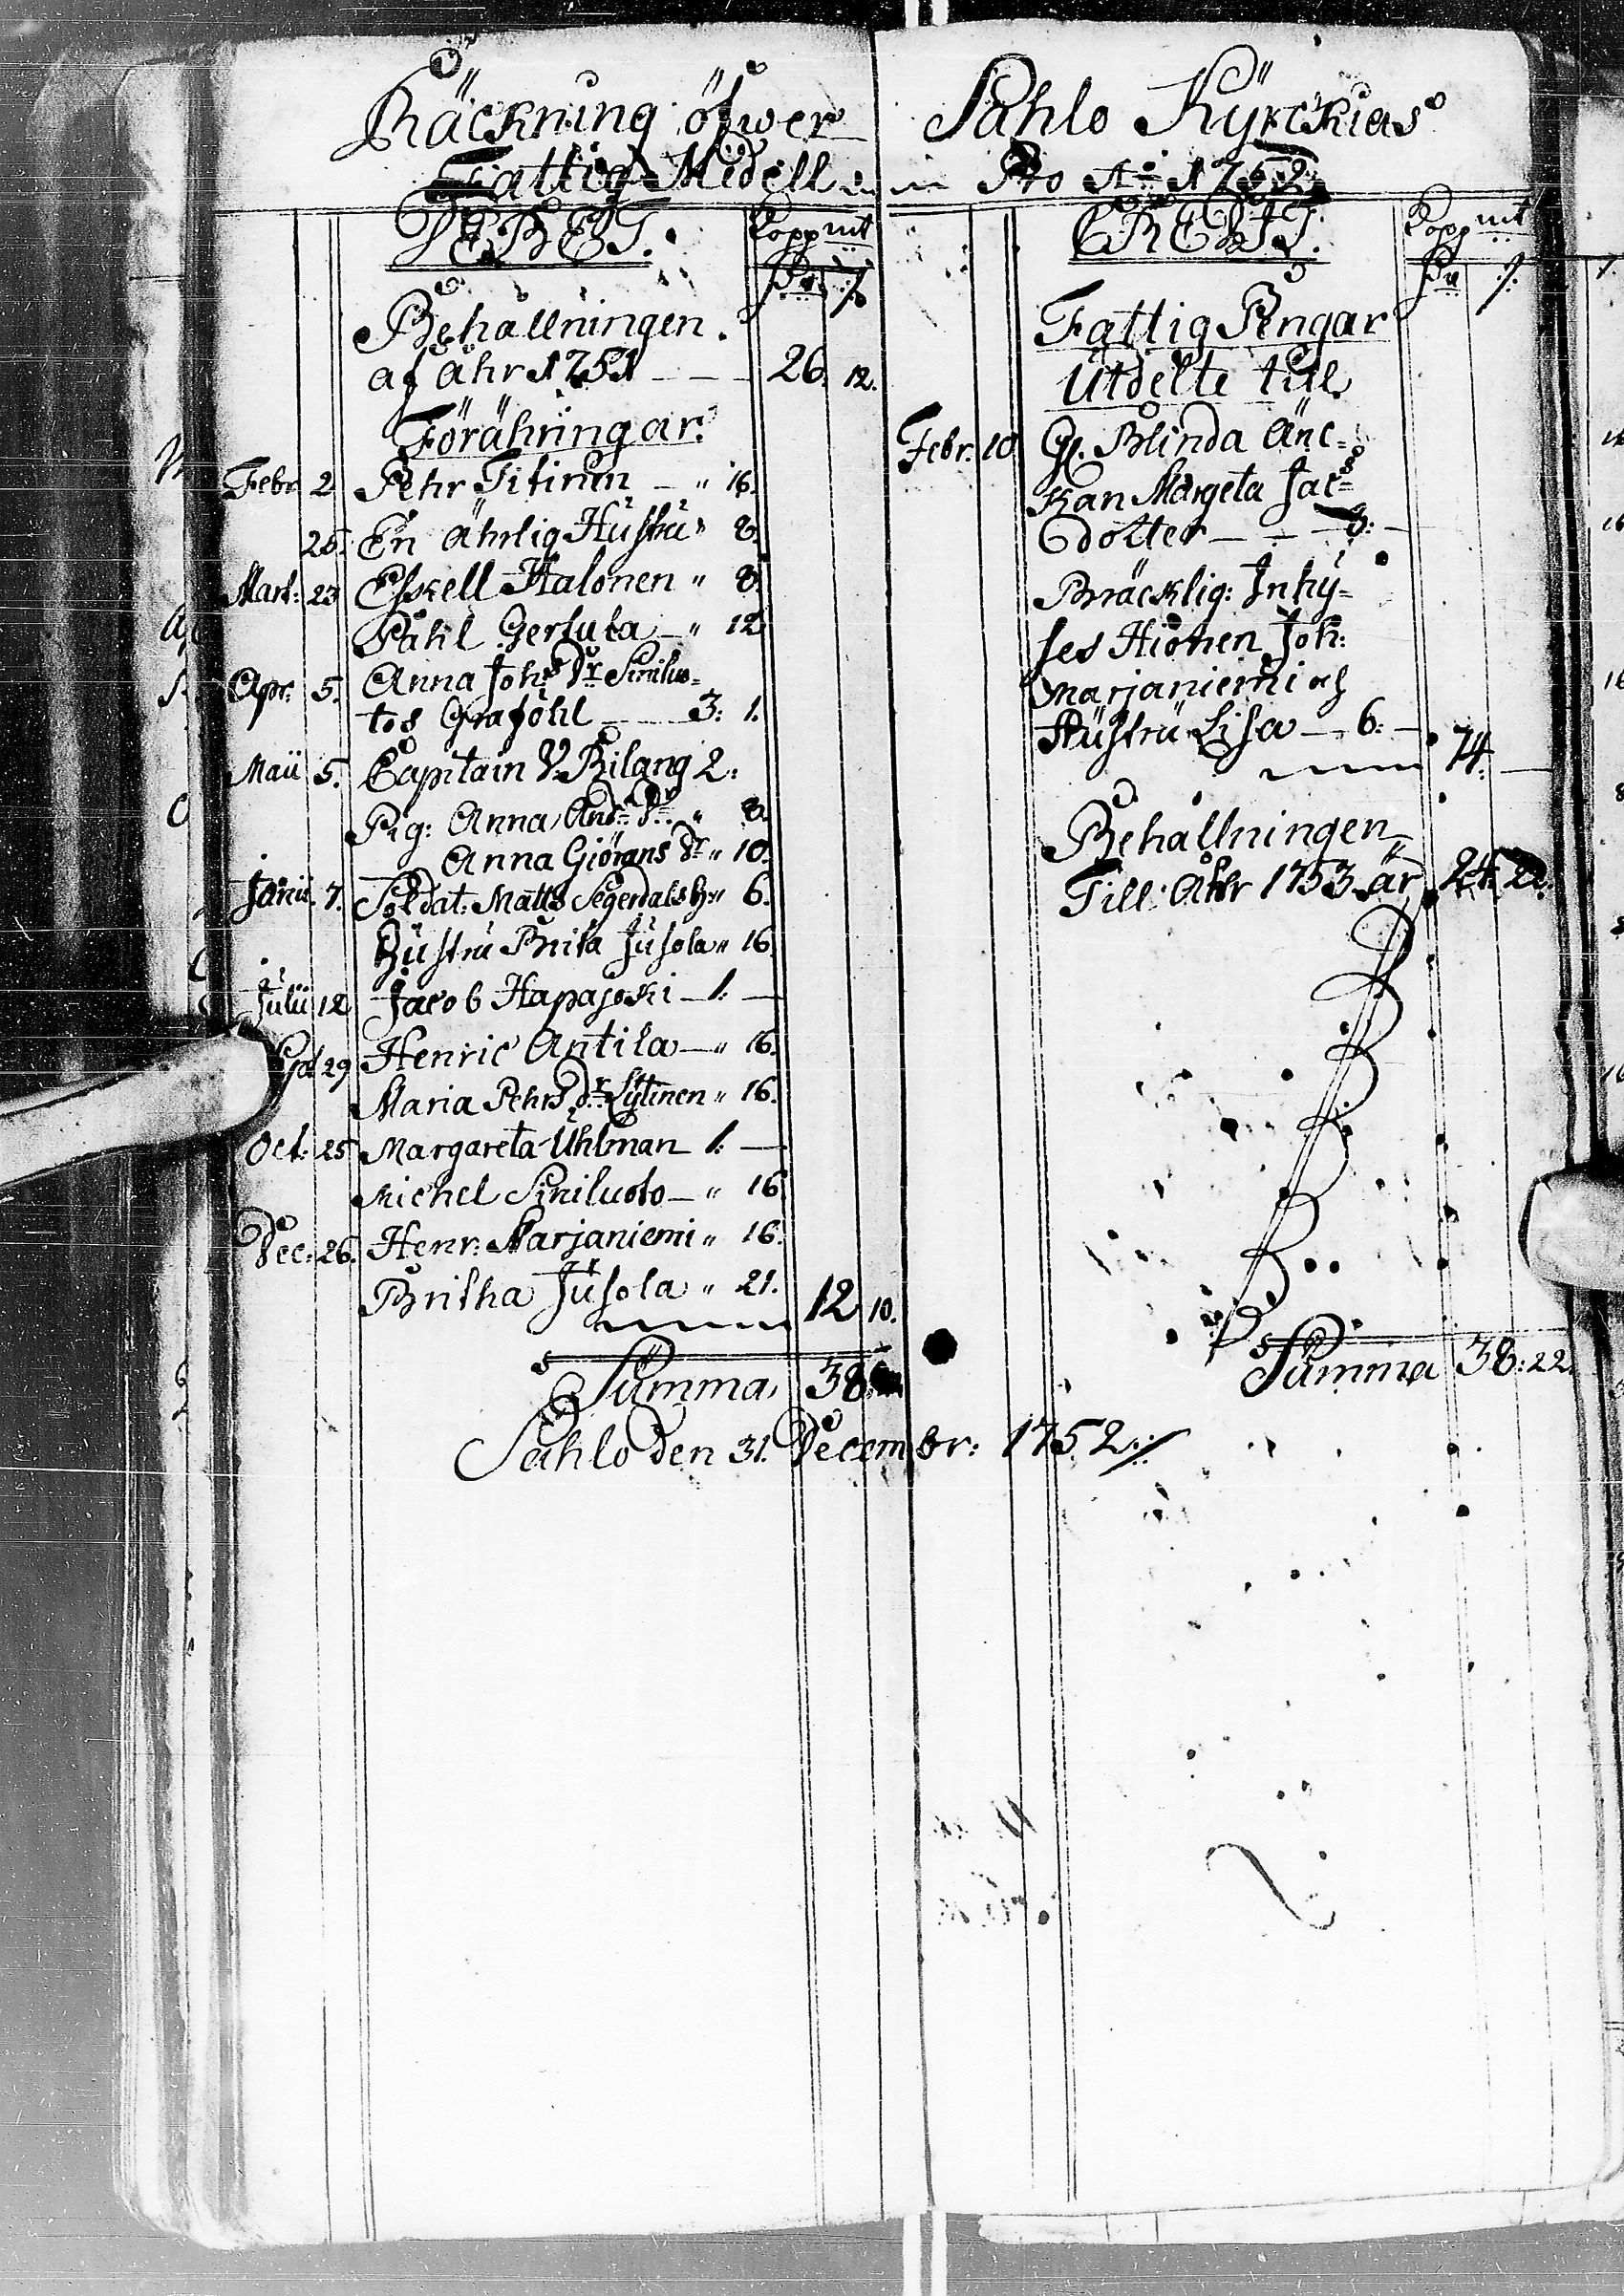 Räckning öfwer Pahlo Kyrckias
Fattig Medell Pro Ao 1752
DEBET. Kopp mt
Behållningen.
af åhr 1751 — — 26. 12.
Förähringar.
Febr. 2 Pehr Titinen — " 16.
25. En ährlig Hustru " 8.
Mart: 23 Eskell Halonen " 8.
Påhl Gerfuta — " 12
Apr. 5. Anna Johs Dr Siniluo=
tos Grafohl — 3: 1.
Maii 5. Capitain V. Bilang 2:
Pig: Anna Ands Dr " 8.
Anna Giörans Dr " 10.
Junii. 7. Soldat. Matts Segerdals h: " 6.
Hustru Brita Jusola " 16.
Julii 12 Jacob Hapajoski — 1: —
29 Henric Antila — " 16.
Maria Pehrs Dr Lytinen " 16.
Oct: 25 Margareta Uhlman 1: —
Michel Siniluoto — " 16
Dec: 26. Henr: Marjaniemi " 16.
Britha Jusola " 21. 12 10.
Summa 38:
CREDIT. Kopp mt
Fattig Pengar
Utdelte till
Febr. 10 Gl. Blinda Änc=
kan Margeta Jac=
dotter — — 8: —
Bräcklig: Inhy=
ses Hionen Joh:
Marjaniemi och
Hustru Lisa — 6: —
14. —
Behållningen
Till Åhr 1753 är 24: 22.
Summa 38: 22.
Pahlo den 31. Decembr: 1752./.